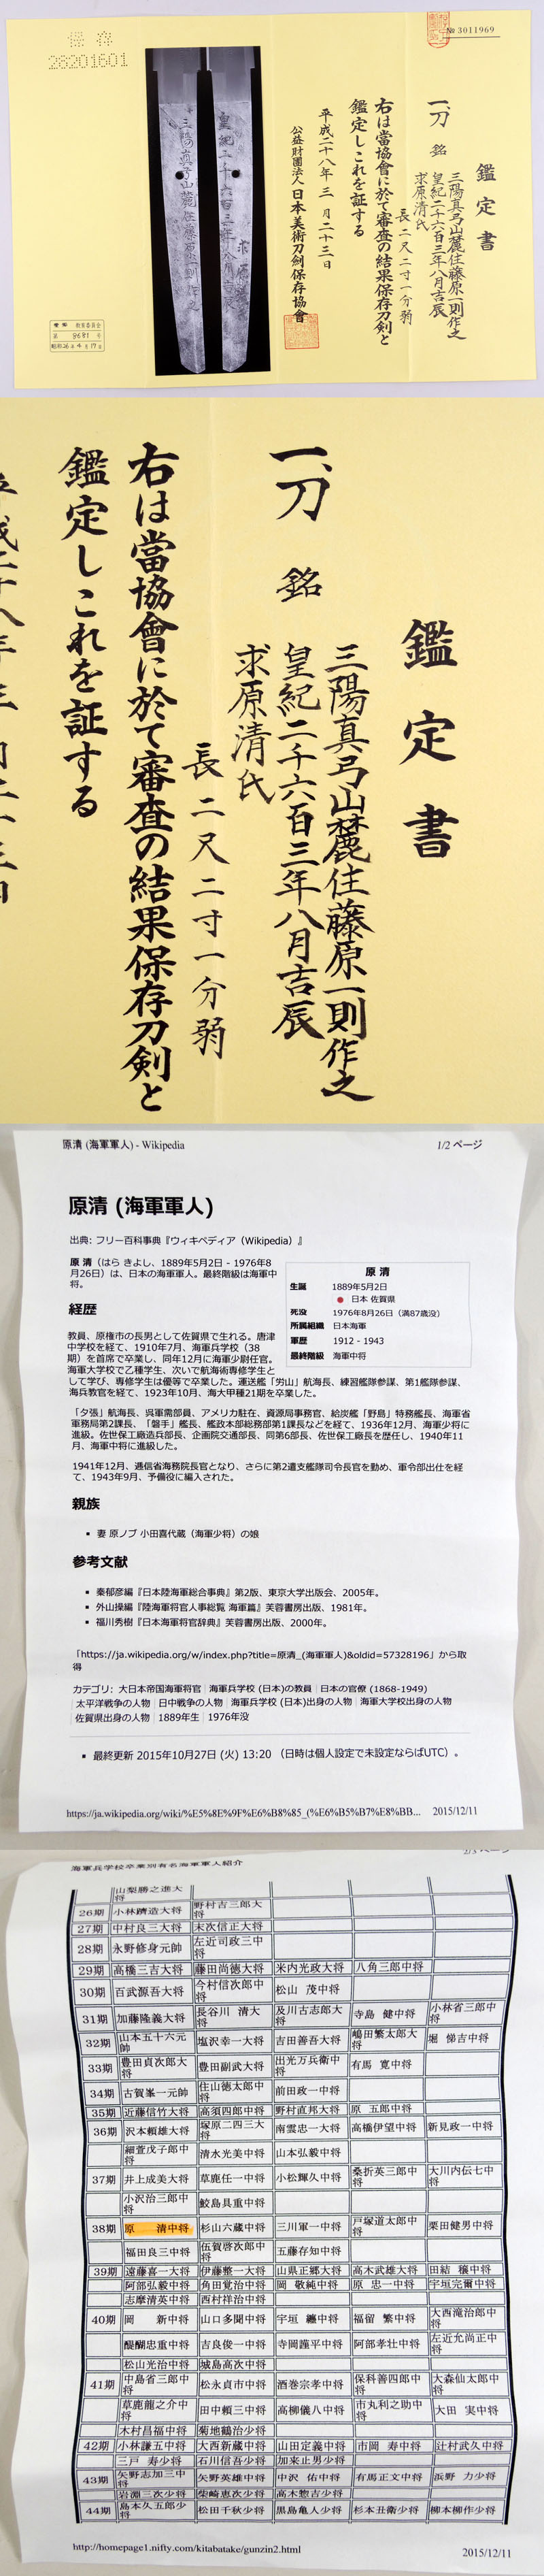 保存
28201601
№ 3011969
鑑定書
一、刀 銘
三陽真弓山麓住藤原一則作之
皇紀二千六百三年八月吉辰
求原清氏
長二尺二寸一分弱
右は當協會に於て審査の結果保存刀剣と
鑑定しこれを証する
平成二十八年三月二十三日
公益財團法人日本美術刀劍保存協會
鑑定書
一、刀 銘
三陽真弓山麓住藤原一則作之
皇紀二千六百三年八月吉辰
求原清氏
長二尺二寸一分弱
右は當協會に於て審査の結果保存刀剣と
鑑定しこれを証する
原清 (海軍軍人) - Wikipedia
1/2 ページ
原清 (海軍軍人)
出典: フリー百科事典『ウィキペディア（Wikipedia）』
原 清（はら きよし、1889年5月2日 - 1976年8
月26日）は、日本の海軍軍人。最終階級は海軍中
将。
原 清
生誕 1889年5月2日
日本 佐賀県
死没 1976年8月26日（満87歳没）
所属組織 日本海軍
軍歴 1912 - 1943
最終階級 海軍中将
経歴
教員、原権市の長男として佐賀県で生れる。唐津
中学校を経て、1910年7月、海軍兵学校（38
期）を首席で卒業し、同年12月に海軍少尉任官。
海軍大学校で乙種学生、次いで航海術専修学生と
して学び、専修学生は優等で卒業した。運送艦「労山」航海長、練習艦隊参謀、第1艦隊参謀、
海兵教官を経て、1923年10月、海大甲種21期を卒業した。
「夕張」航海長、呉軍需部員、アメリカ駐在、資源局事務官、給炭艦「野島」特務艦長、海軍省
軍務局第2課長、「磐手」艦長、艦政本部総務部第1課長などを経て、1936年12月、海軍少将に
進級。佐世保工廠造兵部長、企画院交通部長、同第6部長、佐世保工廠長を歴任し、1940年11
月、海軍中将に進級した。
1941年12月、逓信省海務院長官となり、さらに第2遣支艦隊司令長官を勤め、軍令部出仕を経
て、1943年9月、予備役に編入された。
親族
妻 原ノブ 小田喜代蔵（海軍少将）の娘
参考文献
秦郁彦編『日本陸海軍総合事典』第2版、東京大学出版会、2005年。
外山操編『陸海軍将官人事総覧 海軍篇』芙蓉書房出版、1981年。
福川秀樹『日本海軍将官辞典』芙蓉書房出版、2000年。
「https://ja.wikipedia.org/w/index.php?title=原清_(海軍軍人)&oldid=57328196」から取
得
カテゴリ: 大日本帝国海軍将官 | 海軍兵学校 (日本)の教員 | 日本の官僚 (1868-1949)
| 太平洋戦争の人物 | 日中戦争の人物 | 海軍兵学校 (日本)出身の人物 | 海軍大学校出身の人物
| 佐賀県出身の人物 | 1889年生 | 1976年没
最終更新 2015年10月27日 (火) 13:20 （日時は個人設定で未設定ならばUTC）。
https://ja.wikipedia.org/wiki/%E5%8E%9F%E6%B8%85_(%E6%B5%B7%E8%BB... 2015/12/11
2/3 ページ
海軍兵学校卒業別有名海軍軍人紹介
山梨勝之進大将
26期 小林躋造大将 野村吉三郎大将
27期 中村良三大将 末次信正大将
28期 永野修身元帥 左近司政三中将
29期 高橋三吉大将 藤田尚徳大将 米内光政大将 八角三郎中将
30期 百武源吾大将 今村信次郎中将 松山 茂中将
31期 加藤隆義大将 長谷川 清大将 及川古志郎大将 寺島 健中将 小林省三郎中将
32期 山本五十六元帥 塩沢幸一大将 吉田善吾大将 嶋田繁太郎大将 堀 悌吉中将
33期 豊田貞次郎大将 豊田副武大将 出光万兵衛中将 有馬 寛中将
34期 古賀峯一元帥 住山徳太郎中将 前田政一中将
35期 近藤信竹大将 高須四郎中将 野村直邦大将 原 五郎中将
36期 沢本頼雄大将 塚原二四三大将 南雲忠一大将 高橋伊望中将 新見政一中将
細萱戊子郎中将 清水光美中将 山本弘毅中将
37期 井上成美大将 草鹿任一中将 小松輝久中将 桑折英三郎中将 大川内伝七中将
小沢治三郎中将 鮫島具重中将
38期 原 清中将 杉山六蔵中将 三川軍一中将 戸塚道太郎中将 栗田健男中将
福田良三中将 伍賀啓次郎中将 五藤存知中将
39期 遠藤喜一大将 伊藤整一大将 山県正郷大将 高木武雄大将 田結 穣中将
阿部弘毅中将 角田覚治中将 岡 敬純中将 原 忠一中将 宇垣完爾中将
志摩清英中将 西村祥治中将
40期 岡 新中将 山口多聞中将 宇垣 纏中将 福留 繁中将 大西滝治郎中将
醍醐忠重中将 吉良俊一中将 寺岡謹平中将 阿部孝壮中将 左近允尚正中将
松山光治中将 城島高次中将
41期 中島省三郎中将 松永貞市中将 酒巻宗孝中将 保科善四郎中将 大森仙太郎中将
草鹿龍之介中将 田中頼三中将 高柳儀八中将 市丸利之助中将 大田 実中将
木村昌福中将 菊地鶴治少将
42期 小林謙五中将 大西新蔵中将 山田定義中将 市岡 寿中将 辻村武久中将
三戸 寿少将 石川信吾少将 加来止男少将
43期 矢野志加三中将 矢野英雄中将 中沢 佑中将 有馬正文中将 浜野 力少将
岩淵三次少将 柴崎恵次少将 高木惣吉少将
44期 島本久五郎少将 松田千秋少将 黒島亀人少将 杉本丑衛少将 柳本柳作少将
http://homepage1.nifty.com/kitabatake/gunzin2.html 2015/12/11